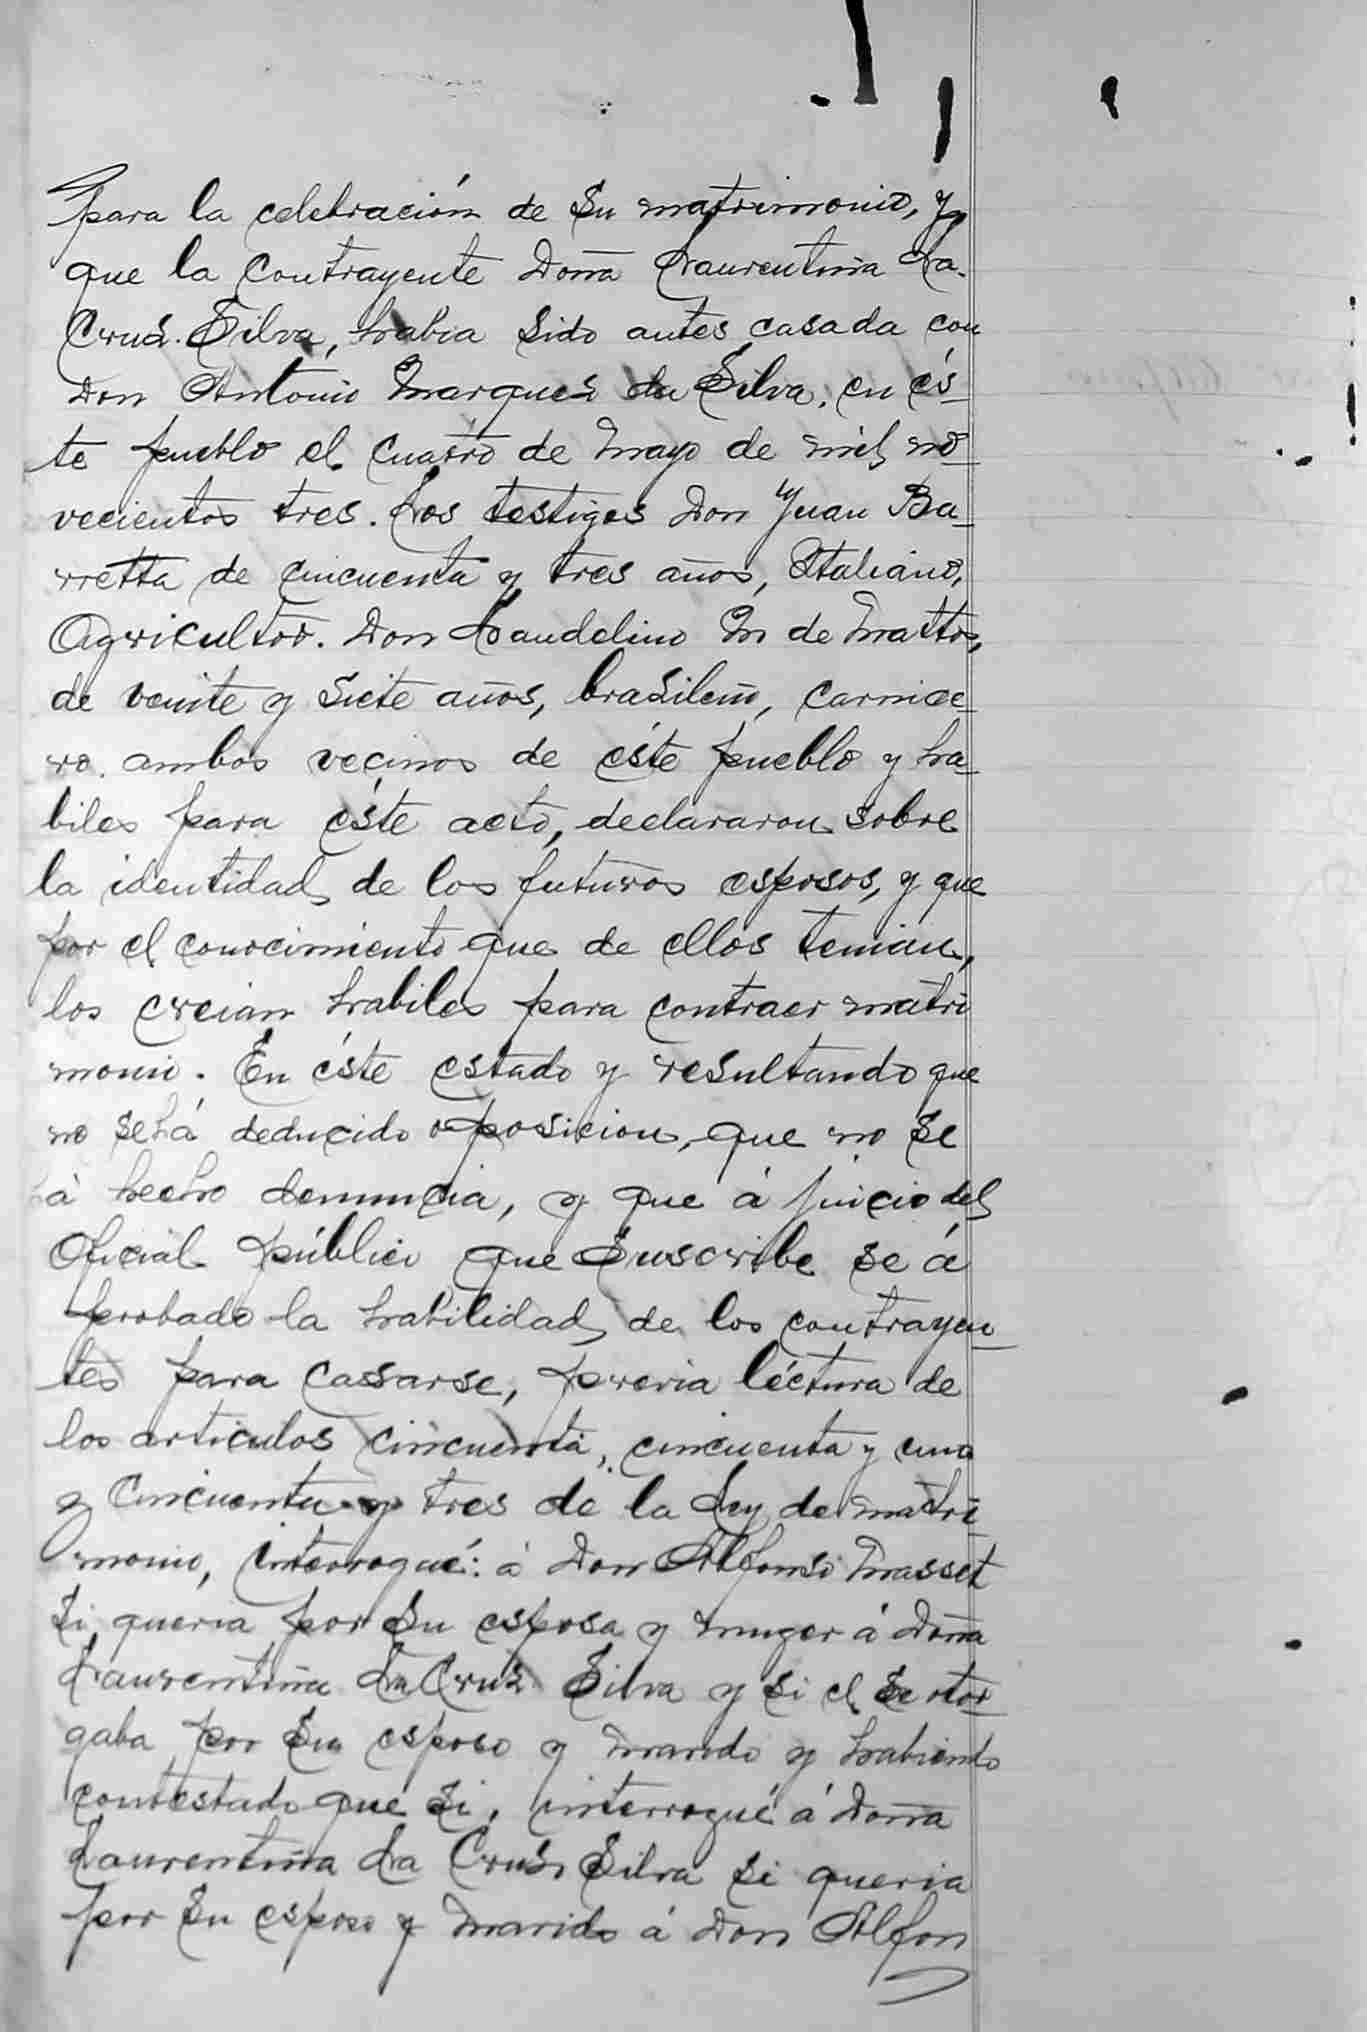 para la celebración de su matrimonio, y
que la contrayente Doña Laurentina La
Cruz Silva, habia sido antes casada con
Don Antonio Marques da Silva, en és-
te pueblo el cuatro de Mayo de mil no-
vecientos tres. Los testigos Don Juan Ba-
rretta de cincuenta y tres años, Italiano,
Agricultor. Don Laudelino M de Mattos,
de veinte y siete años, brasileño, carnice-
ro. ambos vecinos de éste pueblo y ha-
biles para éste acto, declararon sobre
la identidad de los futuros esposos, y que
por el conocimiento que de ellos tenian,
los creian habiles para contraer matri
monio. En éste estado y resultando que
no se há deducido oposicion, que no se
há hecho denuncia, y que á juicio del
Oficial público que suscribe se á
probado la habilidad de los contrayen-
tes para cassarse, previa léctura de
los articulos cincuenta, cincuenta y uno
y cincuenta y tres de la Ley de matri-
monio, interrogué: á Don Alfonso Masset
si queria por su esposa y muger á Doña
Laurentina La Cruz Silva y si el se otor-
gaba por su esposo y marido y habiendo
contestado que si, interrogué á Doña
Laurentina La Cruz Silva si queria
por su esposo y marido á Don Alfon